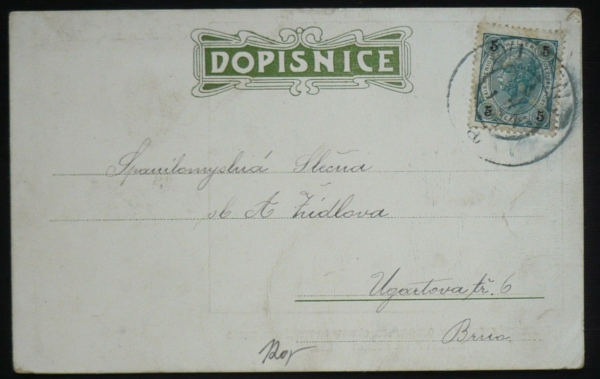 DOPISNICE
5 5
5 5
Spanilomyslná Slečna
sl. A Židlova
Ugartova tř. 6
Brno